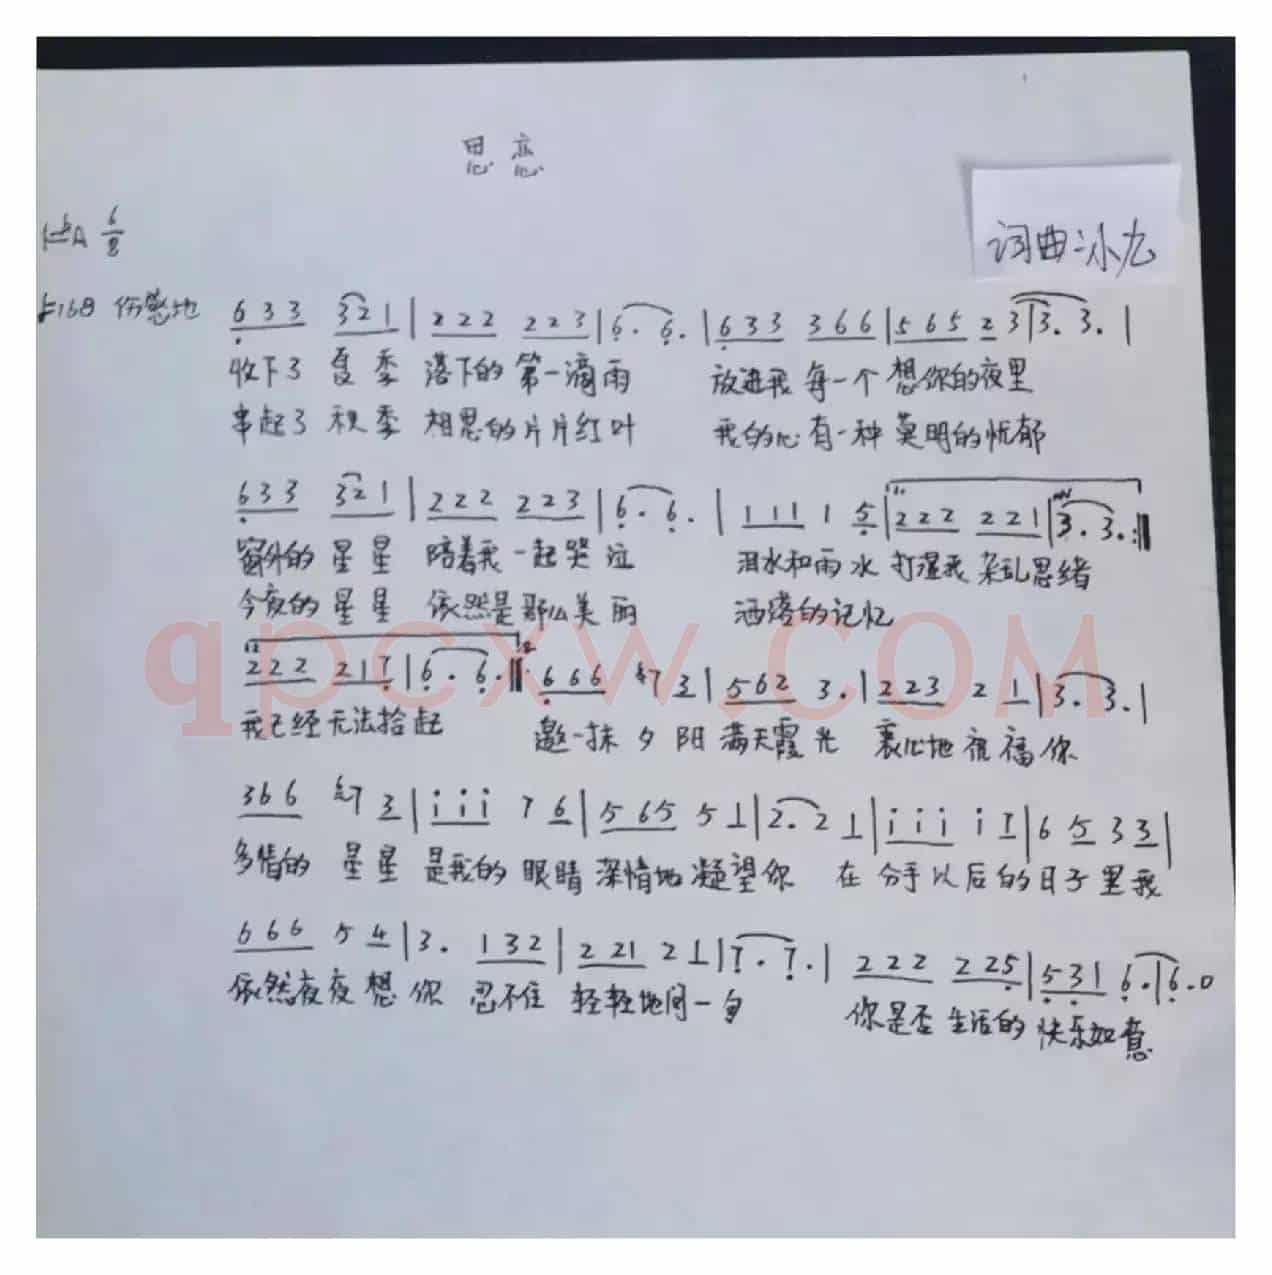 思恋
1=♭A 6/8
词曲:小九
♩=168 伤感地
6̣33 321|222 223|6̣. 6̣.|6̣33 366|565 2 3|3. 3.|
收下了 夏季 落下的 第一滴雨 放进我 每一个 想你的夜里
串起了 秋季 相思的片片红叶 我的心有一种 莫明的忧郁
6̣33 321|222 223|6̣. 6̣.|111 1 5̣|222 221|3. 3. :‖
窗外的 星星 陪着我 一起哭泣 泪水和雨水 打湿我 杂乱思绪
今夜的 星星 依然是那么美丽 洒落的记忆
qpcxw.COM
222 217̣|6̣. 6̣.‖ 6̣66 7 3|562 3.|223 2 1|3. 3.|
我已经无法拾起 邀一抹 夕阳 满天霞光 衷心地祝福你
366 7 3|i̇i̇i̇ 7 6|565 5 1|2. 2 1|i̇i̇i̇ i̇ 7|6 5 3 3|
多情的 星星 是我的 眼睛 深情地凝望你 在 分手以后的日子里我
666 5 4|3. 132|221 2 1|7̣. 7̣.|222 225̣|5̣3̣1 6̣.|6̣. 0
依然夜夜想你 忍不住 轻轻地问一句 你是否 生活的 快乐如意